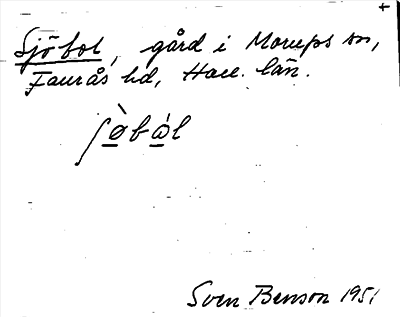 Sjöbol, gård i Morups sn,
Faurås hd, Hall. län.
ʃø̀bὼl
Sven Benson 1951